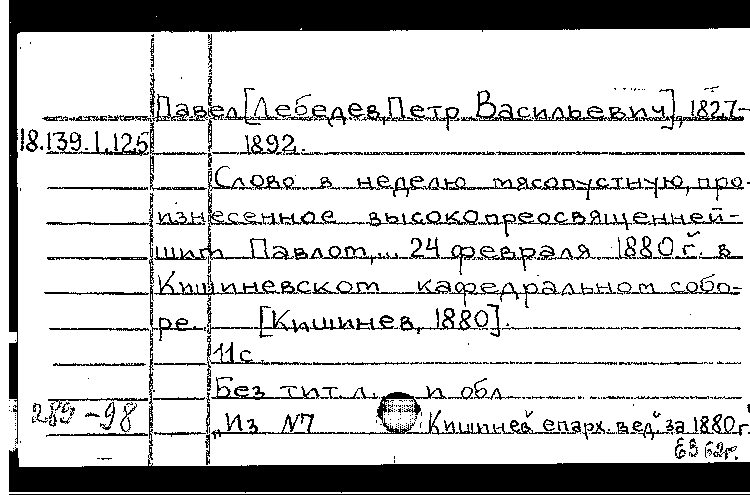 Павел [Лебедев, Петр Васильевич], 1827-
18.139.1.125 1892.
Слово в неделю мясопустную, про-
изнесенное высокопреосвященней-
шим Павлом,... 24 февраля 1880 г. в
Кишиневском кафедральном собо-
ре. [Кишинев, 1880].
11 с.
Без тит. л. и обл
289-98 „Из №7 Кишинев епарх. вед." за 1880 г.
ЕЭ 62г.